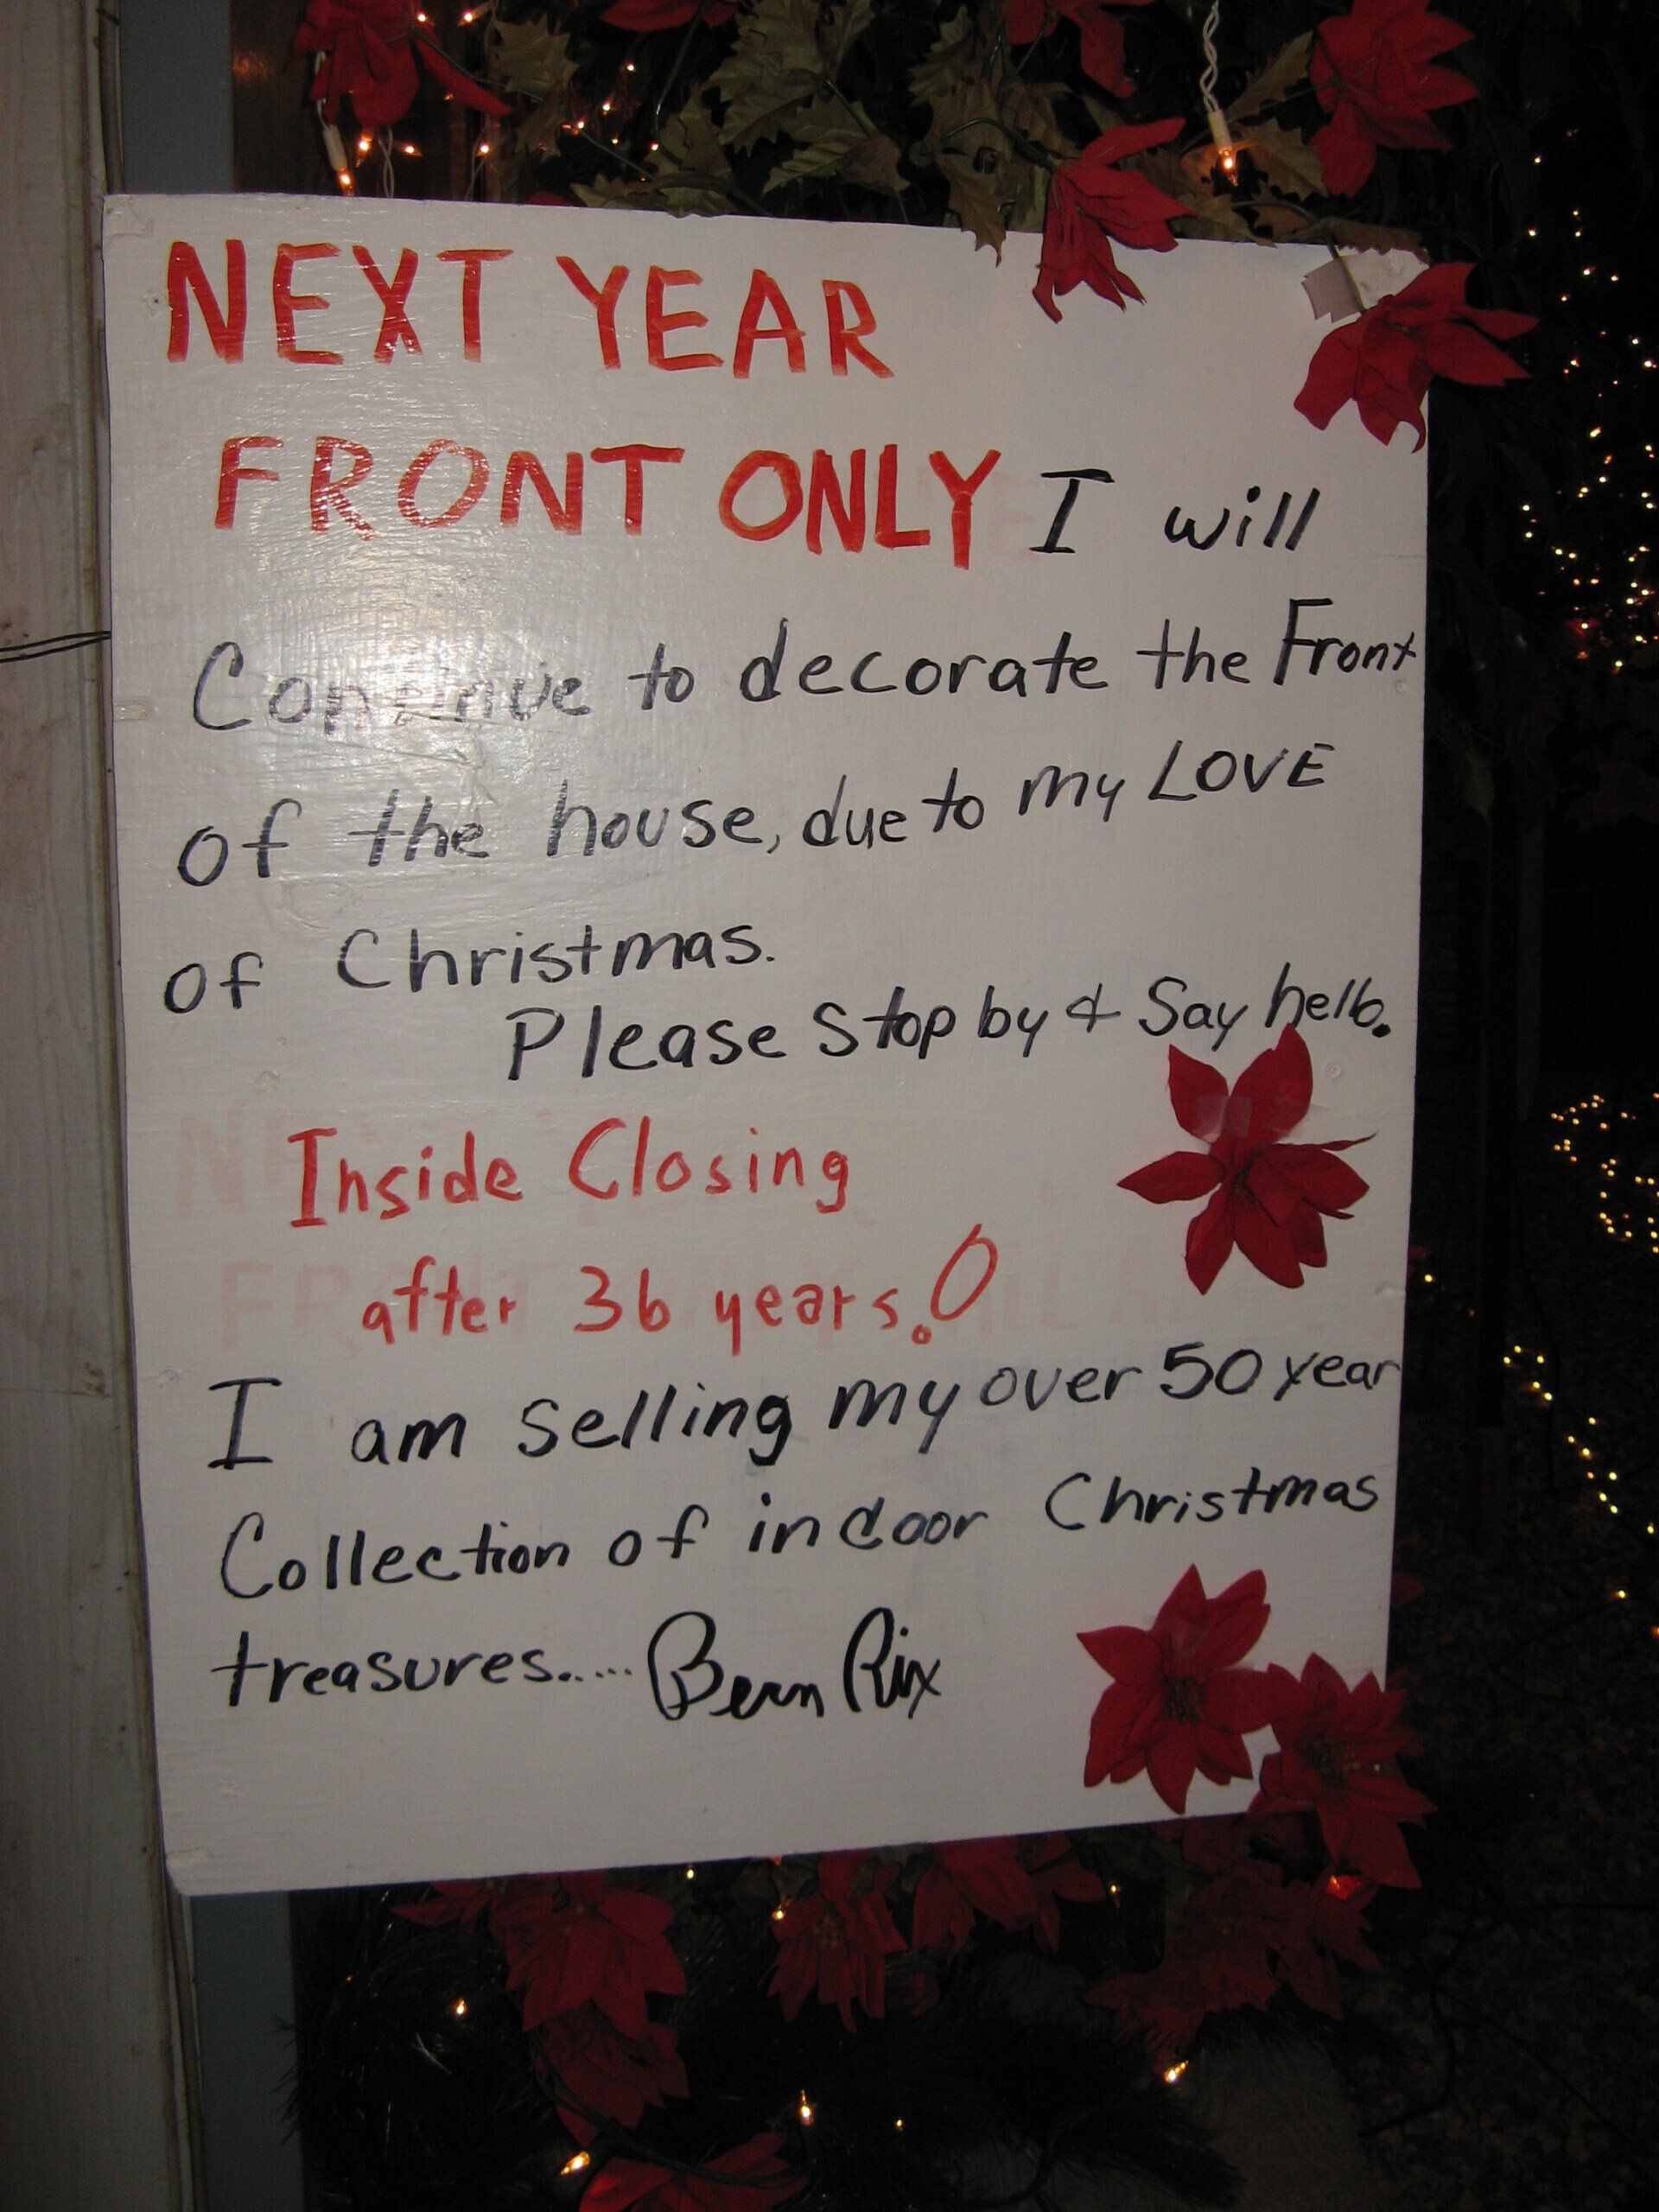 NEXT YEAR
FRONT ONLY I will
Continue to decorate the Front
of the house, due to my LOVE
of Christmas.
Please Stop by & Say hello.
Inside Closing
after 36 years.
I am Selling my over 50 year
Collection of indoor Christmas
treasures..... Bern Rix